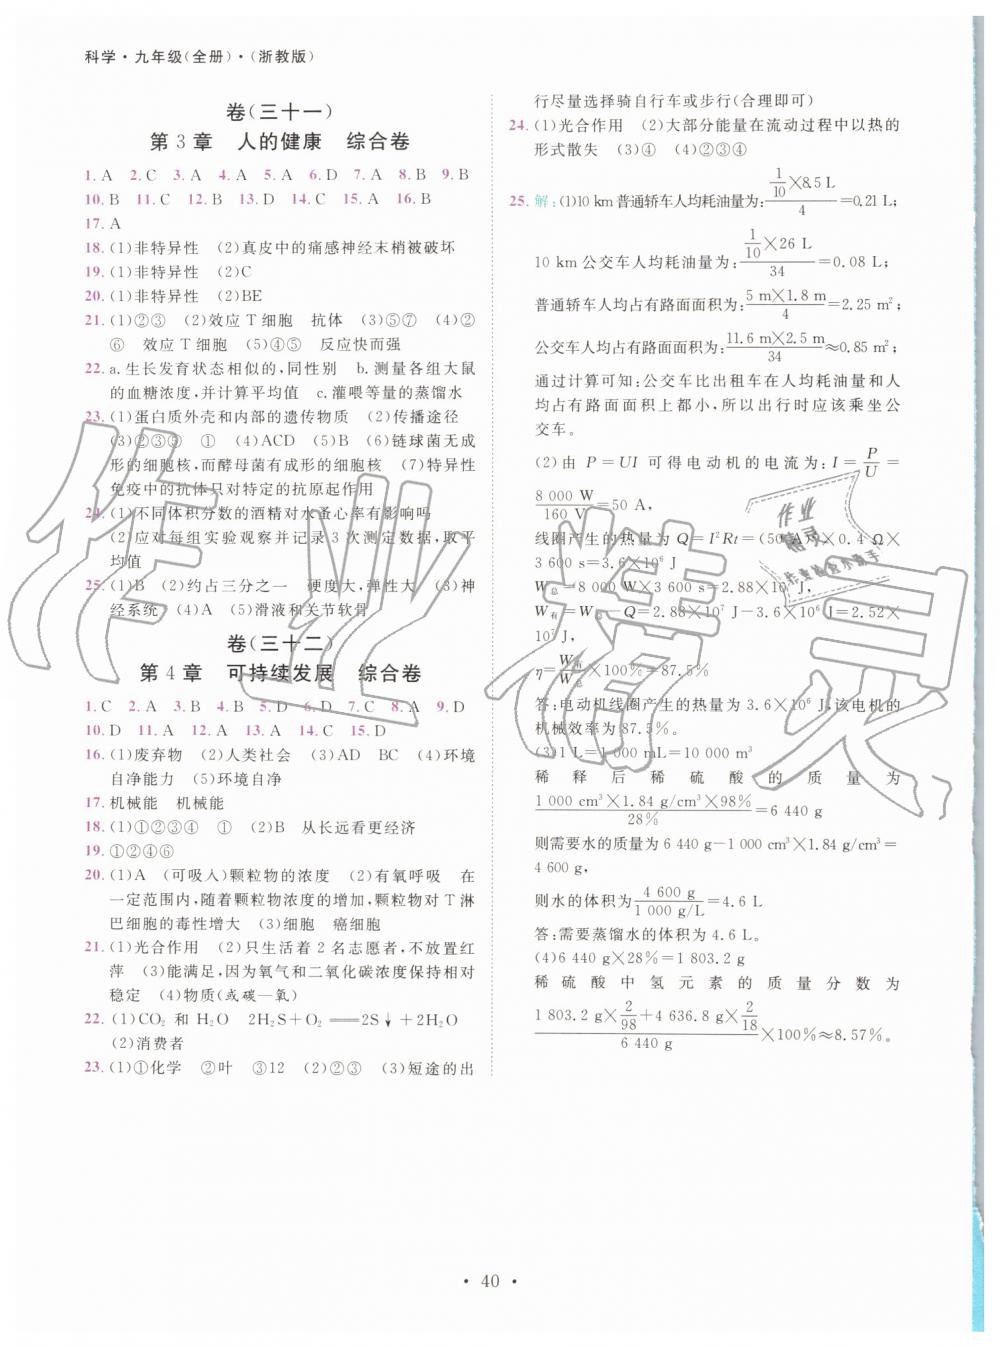 科学·九年级(全册)·(浙教版)
卷(三十一)
第3章 人的健康 综合卷
1. A 2. C 3. A 4. A 5. A 6. D 7. A 8. B 9. B
10. B 11. C 12. B 13. D 14. C 15. A 16. B
17. A
18. (1)非特异性 (2)真皮中的痛感神经末梢被破坏
19. (1)非特异性 (2)C
20. (1)非特异性 (2)BE
21. (1)①②③ (2)效应T细胞 抗体 (3)⑤⑦ (4)②
⑥ 效应T细胞 (5)④⑤ 反应快而强
22. a.生长发育状态相似的,同性别 b.测量各组大鼠
的血糖浓度,并计算平均值 c.灌喂等量的蒸馏水
23. (1)蛋白质外壳和内部的遗传物质 (2)传播途径
(3)②③⑤ ① (4)ACD (5)B (6)链球菌无成
形的细胞核,而酵母菌有成形的细胞核 (7)特异性
免疫中的抗体只对特定的抗原起作用
24. (1)不同体积分数的酒精对水蚤心率有影响吗
(2)应对每组实验观察并记录3次测定数据,取平
均值
25. (1)B (2)约占三分之一 硬度大,弹性大 (3)神
经系统 (4)A (5)滑液和关节软骨
卷(三十二)
第4章 可持续发展 综合卷
1. C 2. A 3. B 4. B 5. D 6. D 7. C 8. A 9. D
10. D 11. A 12. A 13. A 14. C 15. D
16. (1)废弃物 (2)人类社会 (3)AD BC (4)环境
自净能力 (5)环境自净
17. 机械能 机械能
18. (1)①②③④ ① (2)B 从长远看更经济
19. ①②④⑥
20. (1)A (可吸入)颗粒物的浓度 (2)有氧呼吸 在
一定范围内,随着颗粒物浓度的增加,颗粒物对T淋
巴细胞的毒性增大 (3)细胞 癌细胞
21. (1)光合作用 (2)只生活着2名志愿者,不放置红
萍 (3)能满足,因为氧气和二氧化碳浓度保持相对
稳定 (4)物质(或碳—氧)
22. (1)CO₂ 和 H₂O 2H₂S+O₂══2S↓+2H₂O
(2)消费者
23. (1)①化学 ②叶 ③12 (2)②③ (3)短途的出
行尽量选择骑自行车或步行(合理即可)
24. (1)光合作用 (2)大部分能量在流动过程中以热的
形式散失 (3)④ (4)②③④
25. 解:(1)10 km普通轿车人均耗油量为:(1/10×8.5 L)/4=0.21 L;
10 km公交车人均耗油量为:(1/10×26 L)/34=0.08 L;
普通轿车人均占有路面面积为:(5 m×1.8 m)/4=2.25 m²;
公交车人均占有路面面积为:(11.6 m×2.5 m)/34≈0.85 m²;
通过计算可知:公交车比出租车在人均耗油量和人
均占有路面面积上都小,所以出行时应该乘坐公
交车。
(2)由 P=UI 可得电动机的电流为:I=P/U=
8 000 W/160 V=50 A,
线圈产生的热量为 Q=I²Rt=(50 A)²×0.4 Ω×
3 600 s=3.6×10⁶ J
W总=8 000 W×3 600 s=2.88×10⁷ J,
W有=W总-Q=2.88×10⁷ J-3.6×10⁶ J=2.52×
10⁷ J,
η=W有/W总×100%=87.5%
答:电动机线圈产生的热量为 3.6×10⁶ J,该电机的
机械效率为87.5%。
(3)1 L=1 000 mL=10 000 m³
稀释后稀硫酸的质量为
(1 000 cm³×1.84 g/cm³×98%)/28%=6 440 g
则需要水的质量为 6 440 g-1 000 cm³×1.84 g/cm³=
4 600 g,
则水的体积为 4 600 g/1 000 g/L=4.6 L
答:需要蒸馏水的体积为 4.6 L。
(4)6 440 g×28%=1 803.2 g
稀硫酸中氢元素的质量分数为
(1 803.2 g×2/98+4 636.8 g×2/18)/6 440 g×100%≈8.57%。
作业精灵
作业
精灵
·40·